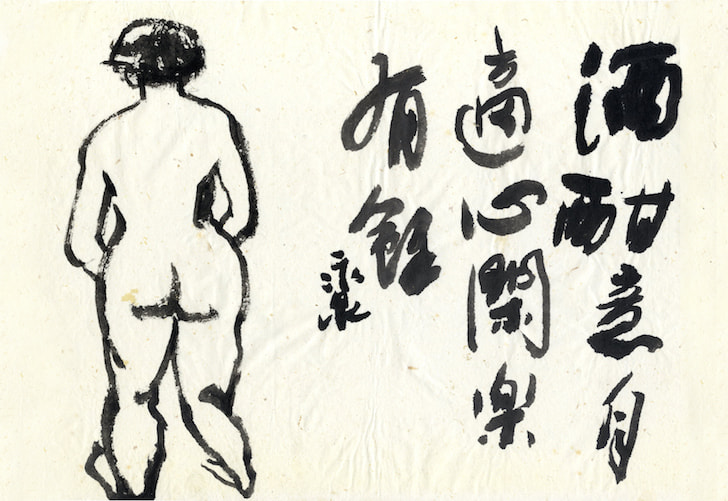 酒酣意自
適心閑楽
有餘